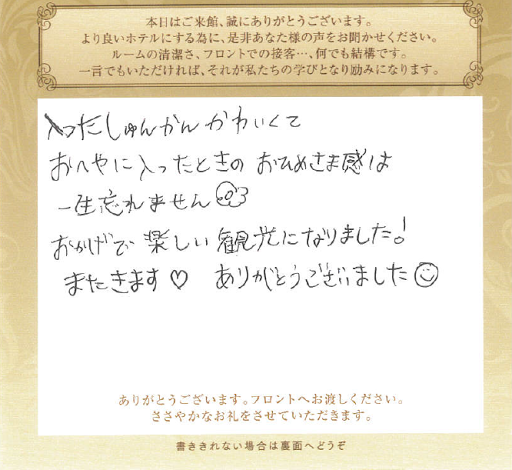 本日はご来館、誠にありがとうございます。
より良いホテルにする為に、是非あなた様の声をお聞かせください。
ルームの清潔さ、フロントでの接客…、何でも結構です。
一言でもいただければ、それが私たちの学びとなり励みになります。
入ったしゅんかんかわいくて
おへやに入ったときの おひめさま感は
一生忘れません
おかげで楽しい観光になりました!
またきます♡ ありがとうございました☺
ありがとうございます。フロントへお渡しください。
ささやかなお礼をさせていただきます。
書ききれない場合は裏面へどうぞ